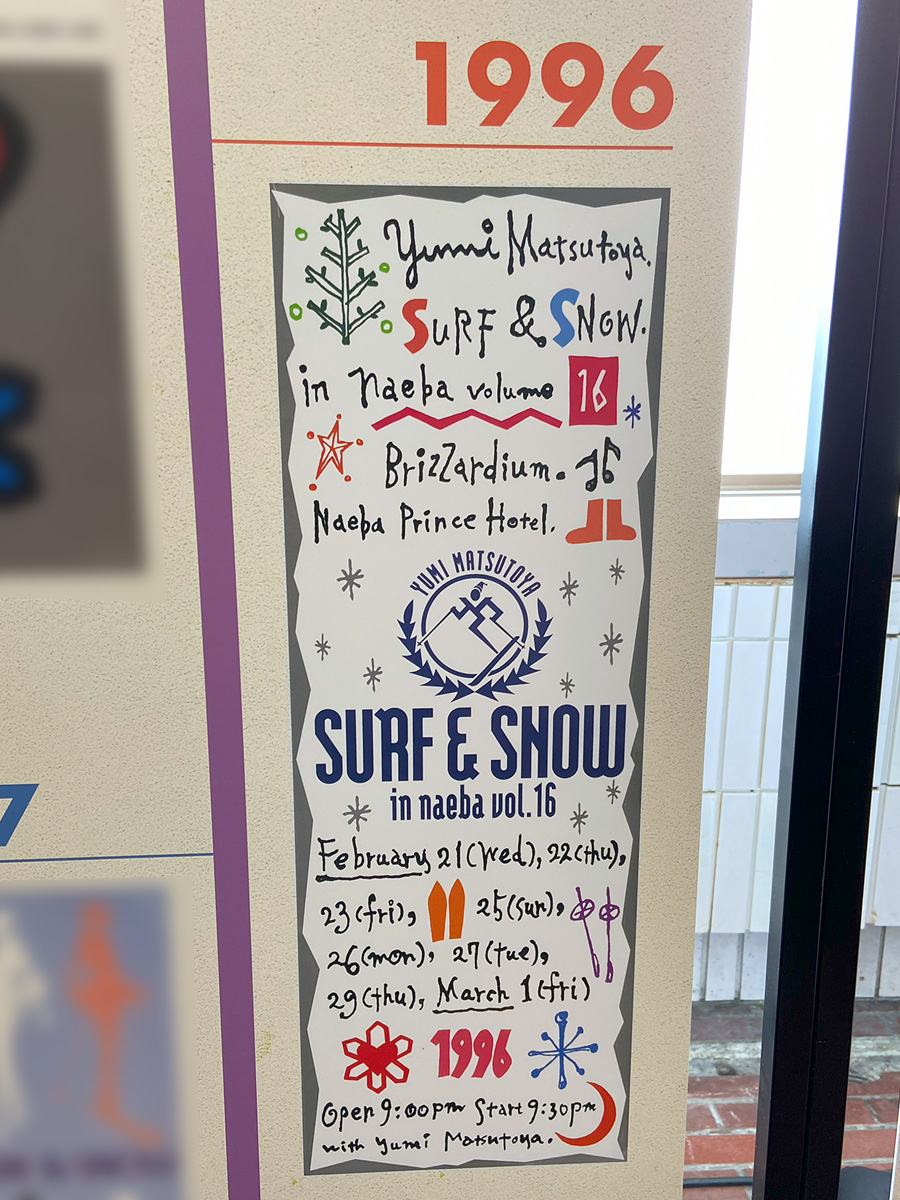 1996
Yumi Matsutoya.
SURF & SNOW.
in Naeba volume 16
BrizZardium.
Naeba Prince Hotel.
YUMI MATSUTOYA
SURF & SNOW
in naeba vol.16
February, 21(Wed), 22(thu),
23(fri), 25(sun),
26(mon), 27(tue),
29(thu), March 1(fri)
1996
Open 9:00pm Start 9:30pm
with Yumi Matsutoya.
7